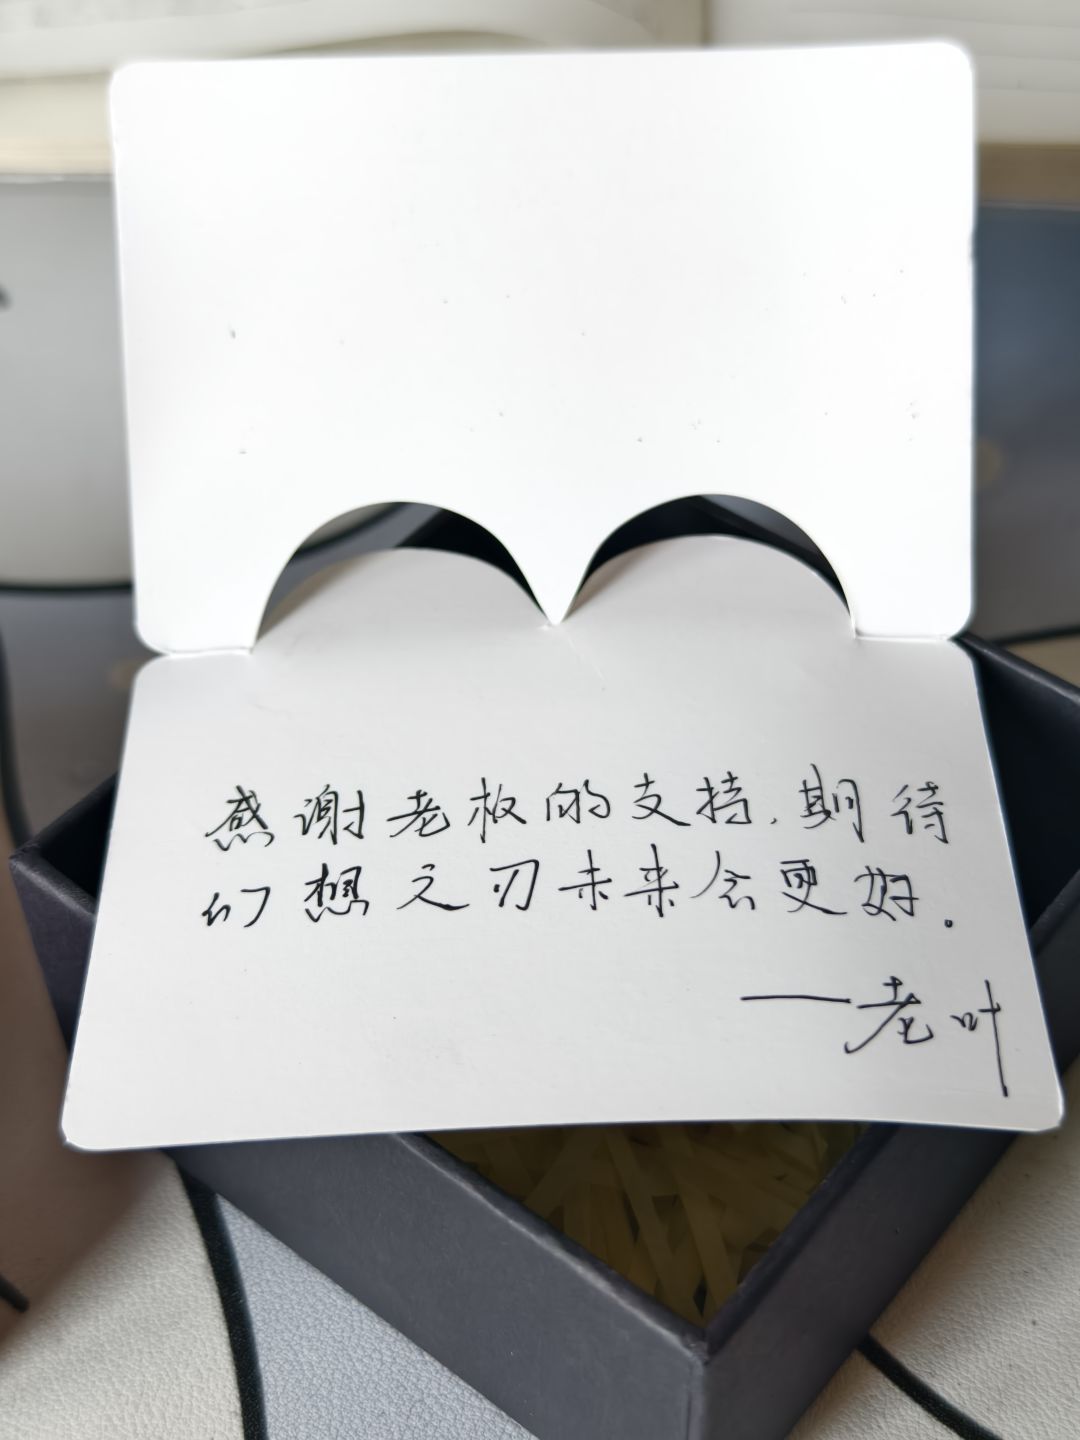 感谢老板的支持,期待
们想之刃未来会更好.
——老叶